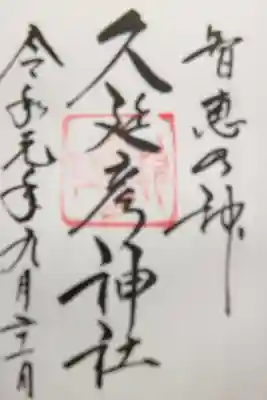 智恵の神
久延彦神社
令和元年九月二十一日